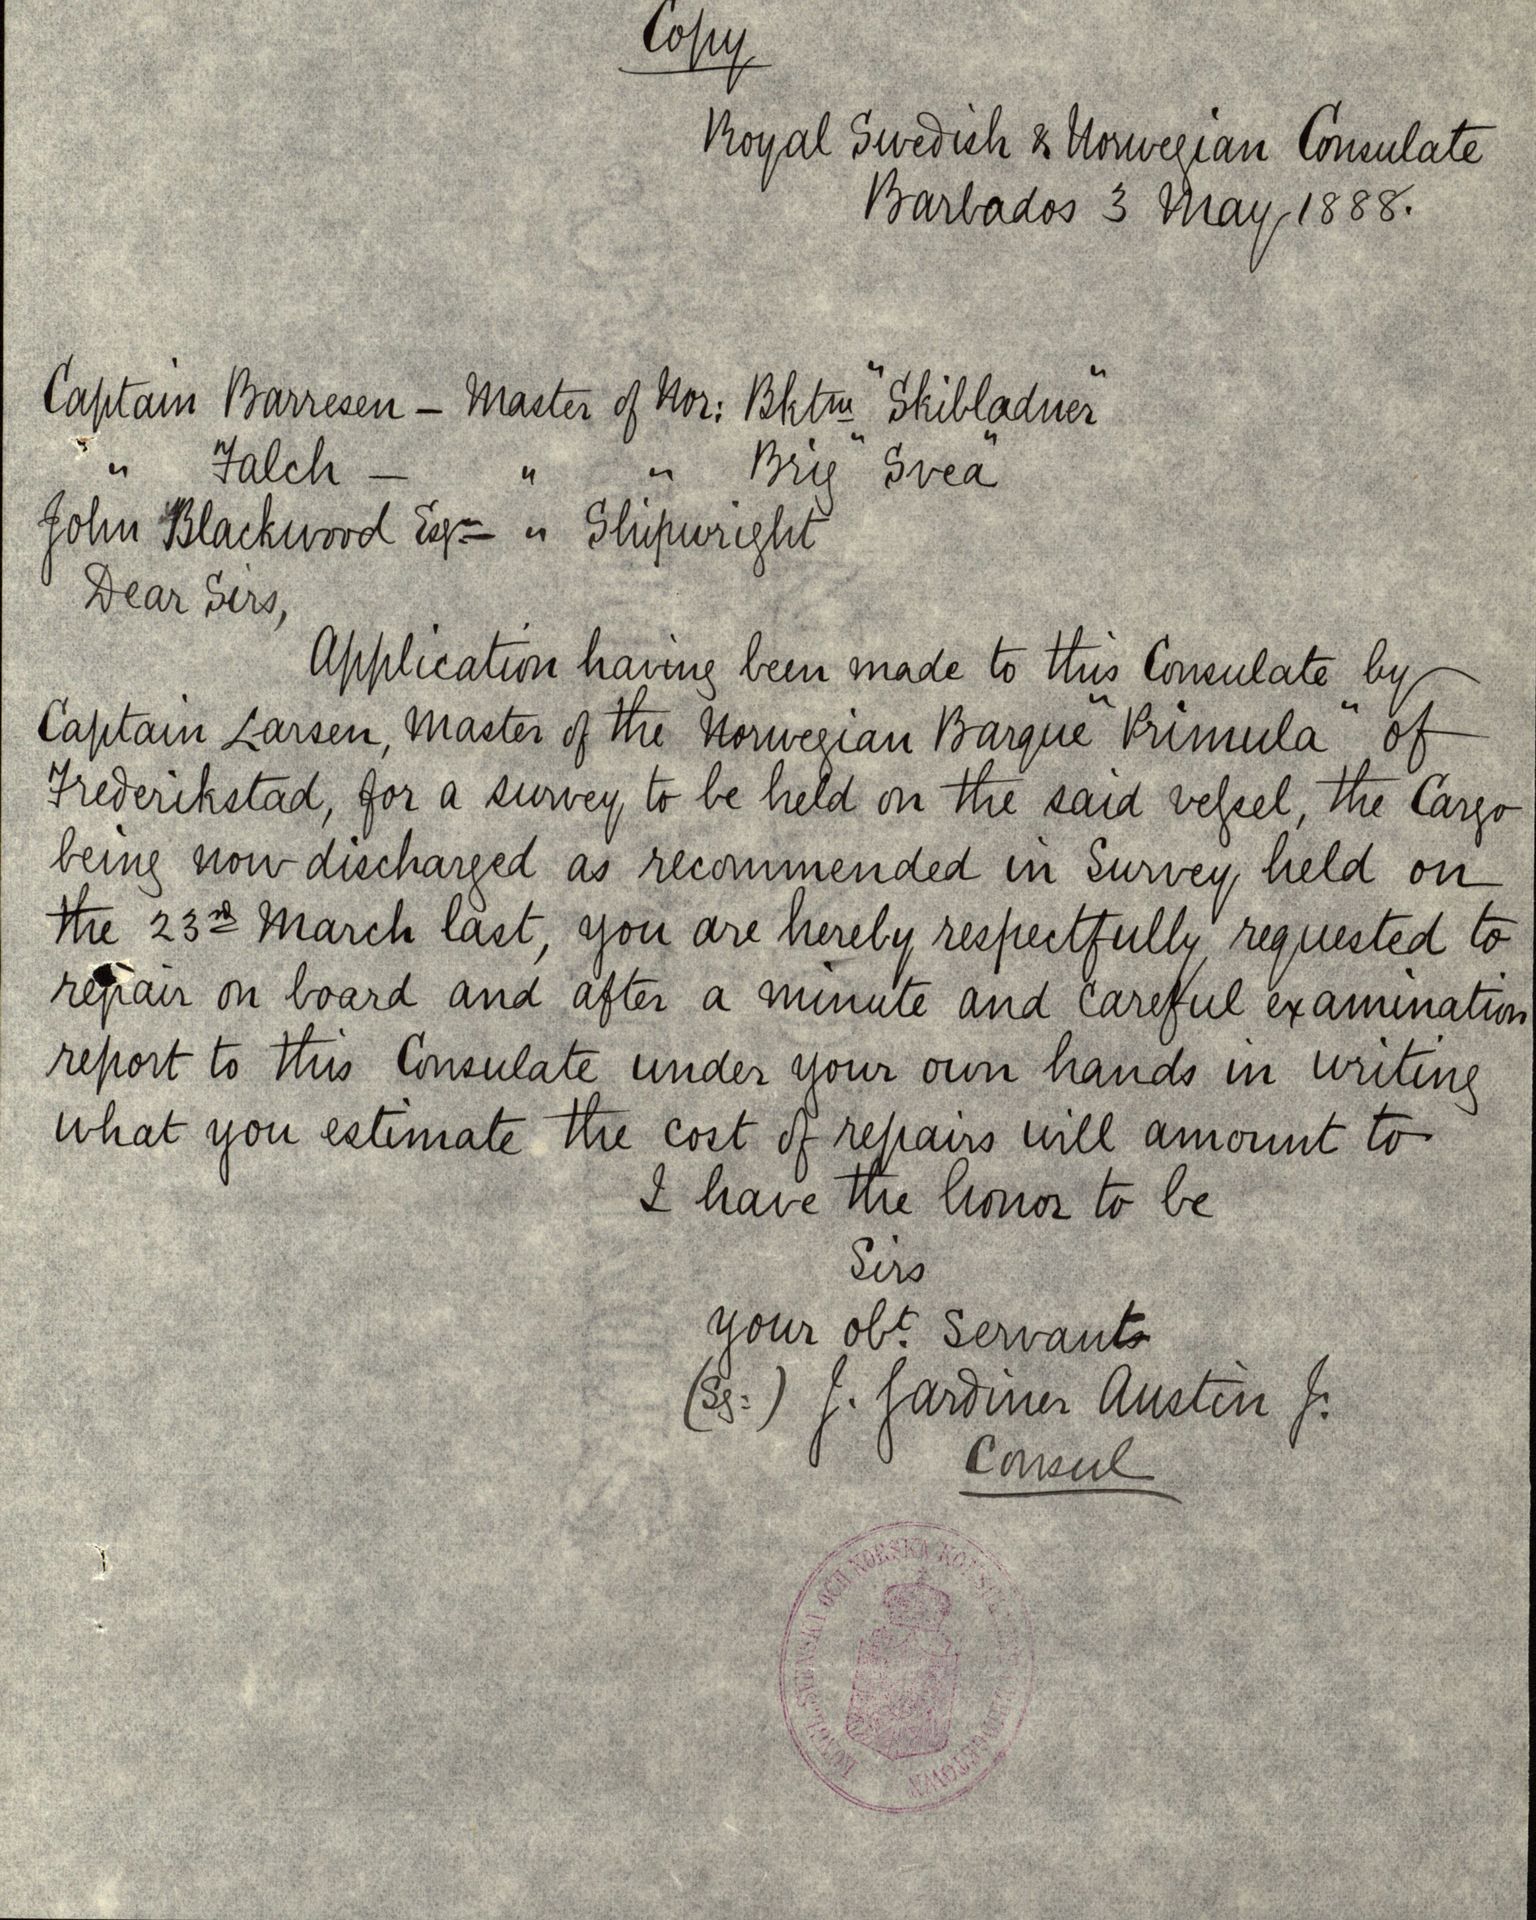 Copy
Royal Swedish & Norwegian Consulate
Barbados 3 May 1888.
Captain Barresen – Master of Nor: Bktne "Skibladner"
" Falch – " " Brig "Svea"
John Blackwood Esqre " Shipwright
Dear Sirs,
Application having been made to this Consulate by
Captain Larsen, Master of the Norwegian Barque "Primula" of
Frederikstad, for a survey to be held on the said vessel, the Cargo
being now discharged as recommended in Survey held on
the 23rd March last, you are hereby respectfully requested to
repair on board and after a minute and careful examination
report to this Consulate under your own hands in writing
what you estimate the cost of repairs will amount to
I have the honor to be
Sirs
your obt. Servants
(Sg:) J. Gardiner Austin Jr.
Consul
KONGL. SVENSKA OCH NORSKA BRIDGETOWN